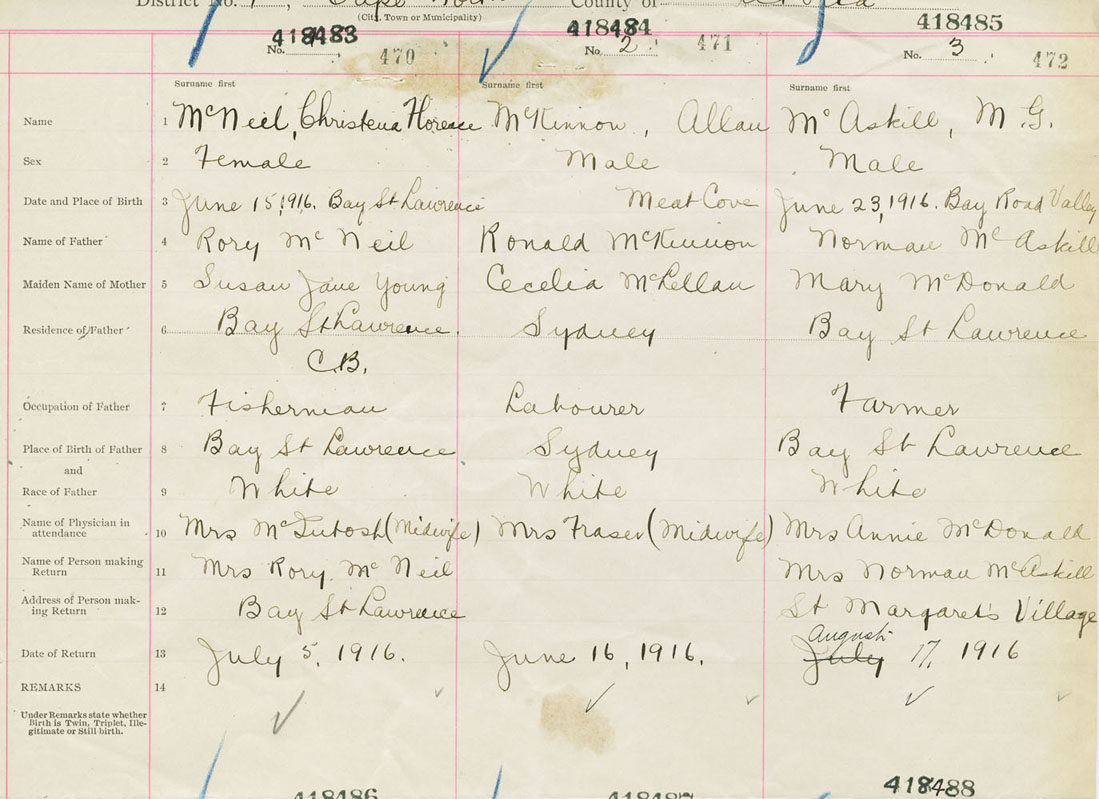 District No. 1, Cape North County of
(City, Town or Municipality)
418483 418484 418485
No. 470 No. 2 471 No. 3 472
Surname first Surname first Surname first
Name 1 McNeil, Christena Florence McKinnon, Allan McAskill, M. G.
Sex 2 Female Male Male
Date and Place of Birth 3 June 15, 1916. Bay St Lawrence Meat Cove June 23, 1916. Bay Road Valley
Name of Father 4 Rory McNeil Ronald McKinnon Norman McAskill
Maiden Name of Mother 5 Susan Jane Young Cecelia McLellan Mary McDonald
Residence of Father 6 Bay St Lawrence. Sydney Bay St Lawrence
C.B.
Occupation of Father 7 Fisherman Labourer Farmer
Place of Birth of Father 8 Bay St Lawrence Sydney Bay St Lawrence
and
Race of Father 9 White White White
Name of Physician in
attendance 10 Mrs McIntosh (Midwife) Mrs Fraser (Midwife) Mrs Annie McDonald
Name of Person making
Return 11 Mrs Rory McNeil Mrs Norman McAskill
Address of Person mak-
ing Return 12 Bay St Lawrence St Margaret's Village
August
Date of Return 13 July 5, 1916. June 16, 1916. July 17, 1916
REMARKS 14
Under Remarks state whether
Birth is Twin, Triplet, Ille-
gitimate or Still-birth.
418486 418487 418488